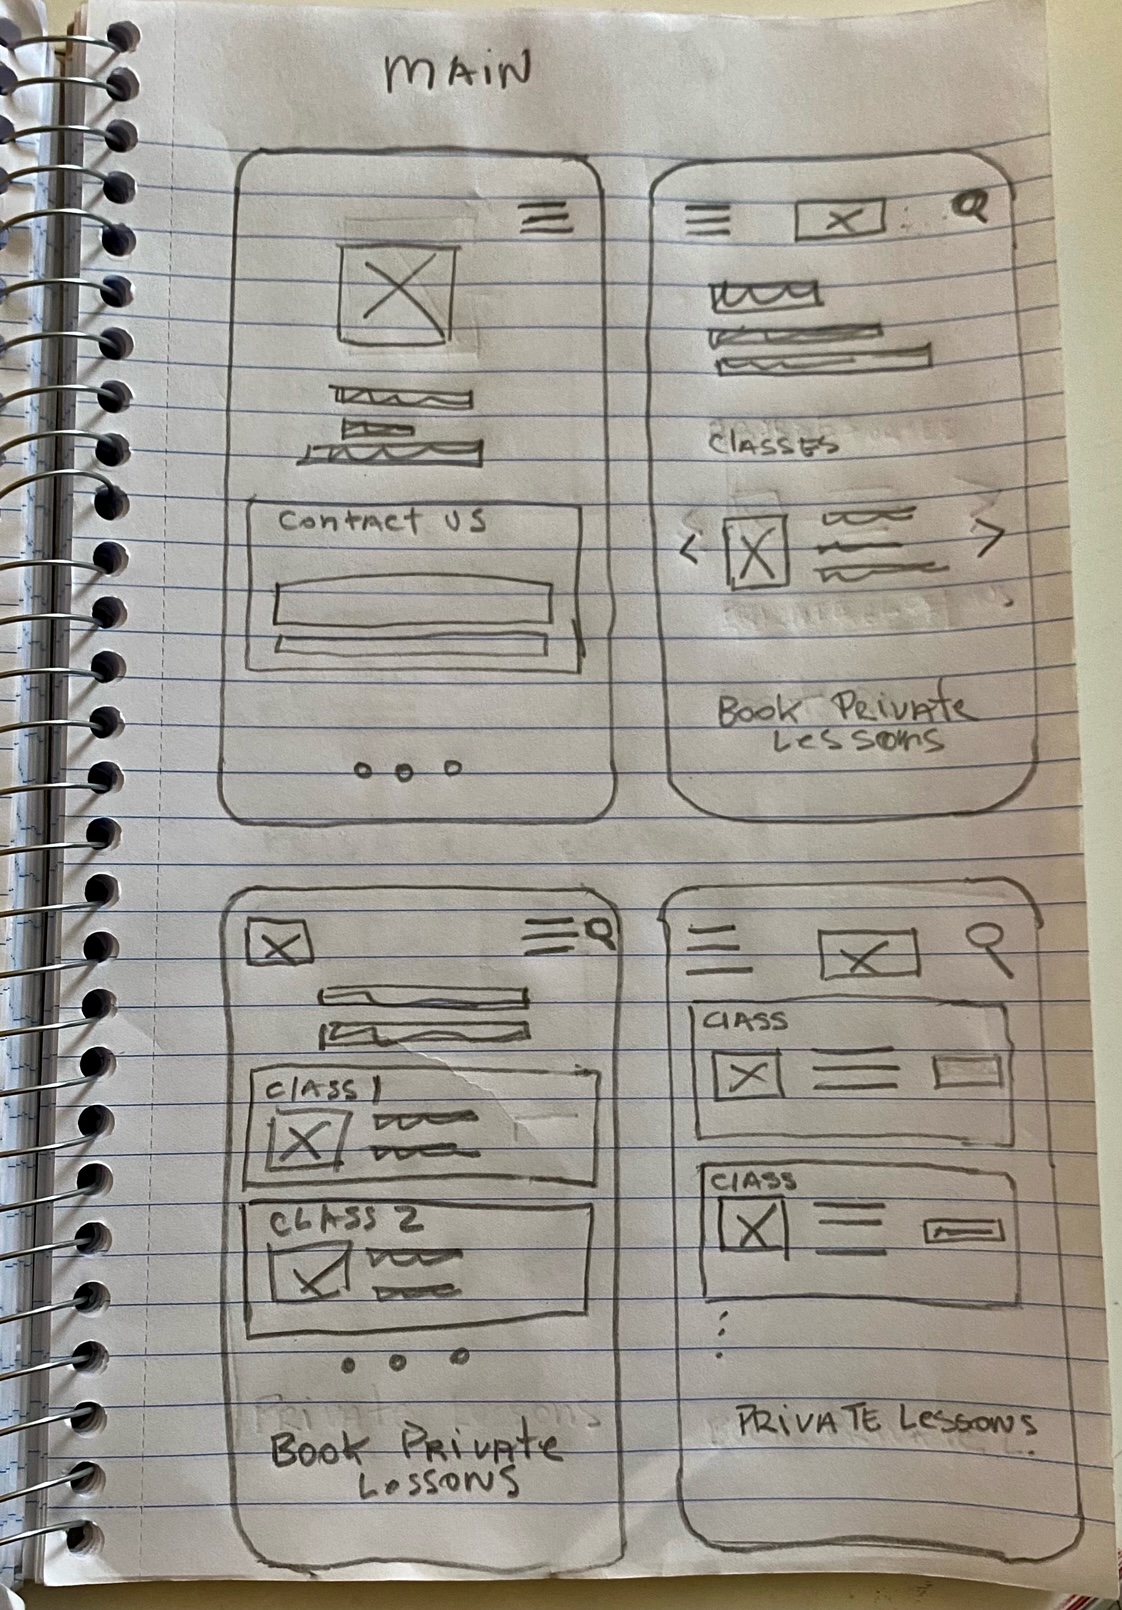 MAIN
Contact US
CLASSES
Book Private
Lessons
CLASS 1
CLASS 2
Book Private
Lessons
CLASS
CLASS
PRIVATE LESSONS